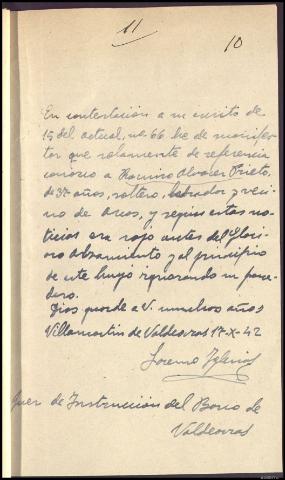 11
10
En contestación a su escrito de
15 del actual, nº 66 he de manifes-
tar que solamente de referencia
conozco a Ramiro Alvarez Prieto.
de 37 años, soltero, labrador y veci-
no de Arcos, y según estas no-
ticias era rojo antes del Glori-
oso Alzamiento y al principio
de este huyó ignorando su para-
dero.
Dios guarde a V. muchos años
Villamartin de Valdeorras 17-X-42
Lorenzo Iglesias
Juez de Instrucción del Barco de
Valdeorras